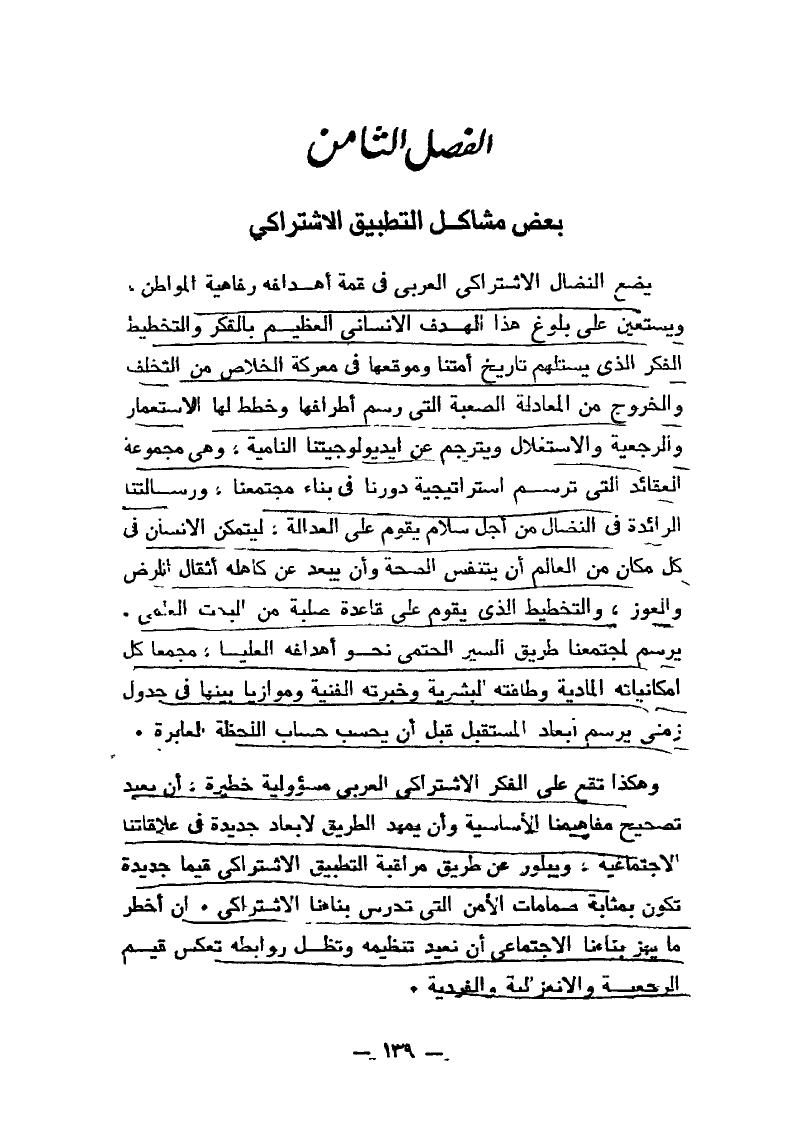 الفصل الثامن
بعض مشاكل التطبيق الاشتراكي
يضع النضال الاشتراكى العربى فى قمة أهدافه رفاهية المواطن ،
ويستعين على بلوغ هذا الهدف الانسانى العظيم بالفكر والتخطيط
الفكر الذى يستلهم تاريخ أمتنا وموقعها فى معركة الخلاص من التخلف
والخروج من المعادلة الصعبة التى رسم أطرافها وخطط لها الاستعمار
والرجعية والاستغلال ويترجم عن ايديولوجيتنا النامية ، وهى مجموعة
العقائد التى ترسم استراتيجية دورنا فى بناء مجتمعنا ، ورسالتنا
الرائدة فى النضال من أجل سلام يقوم على العدالة ، ليتمكن الانسان فى
كل مكان من العالم أن يتنفس الصحة وأن يبعد عن كاهله أثقال المرض
والعوز ، والتخطيط الذى يقوم على قاعدة صلبة من البحث العلمى .
يرسم لمجتمعنا طريق السير الحتمى نحو أهدافه العليا ، مجمعا كل
امكانياته المادية وطاقته البشرية وخبرته الفنية وموازيا بينها فى جدول
زمنى يرسم أبعاد المستقبل قبل أن يحسب حساب اللحظة العابرة .
وهكذا تقع على الفكر الاشتراكى العربى مسؤولية خطيرة ، أن يعيد
تصحيح مفاهيمنا الأساسية وأن يمهد الطريق لابعاد جديدة فى علاقاتنا
الاجتماعية ، ويبلور عن طريق مراقبة التطبيق الاشتراكى قيما جديدة
تكون بمثابة صمامات الأمن التى تدرس بناءنا الاشتراكى . ان أخطر
ما يهز بناءنا الاجتماعى أن نعيد تنظيمه وتظل روابطه تعكس قيم
الرجعية والانعزالية والفردية .
— ١٣٩ —